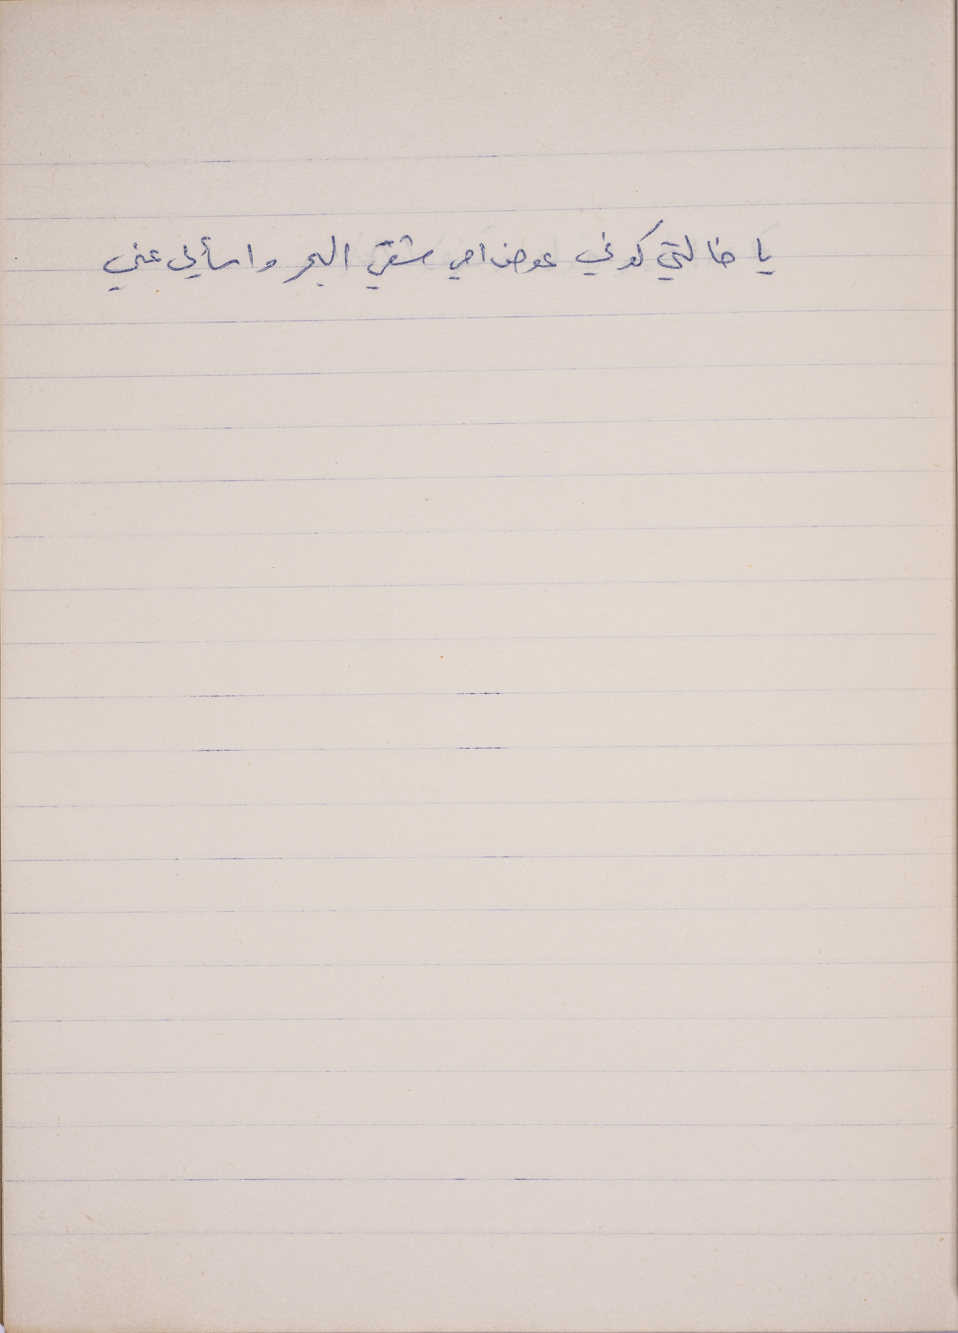 يا خالتي كوني عوض امي شقي البحر واسألي عني